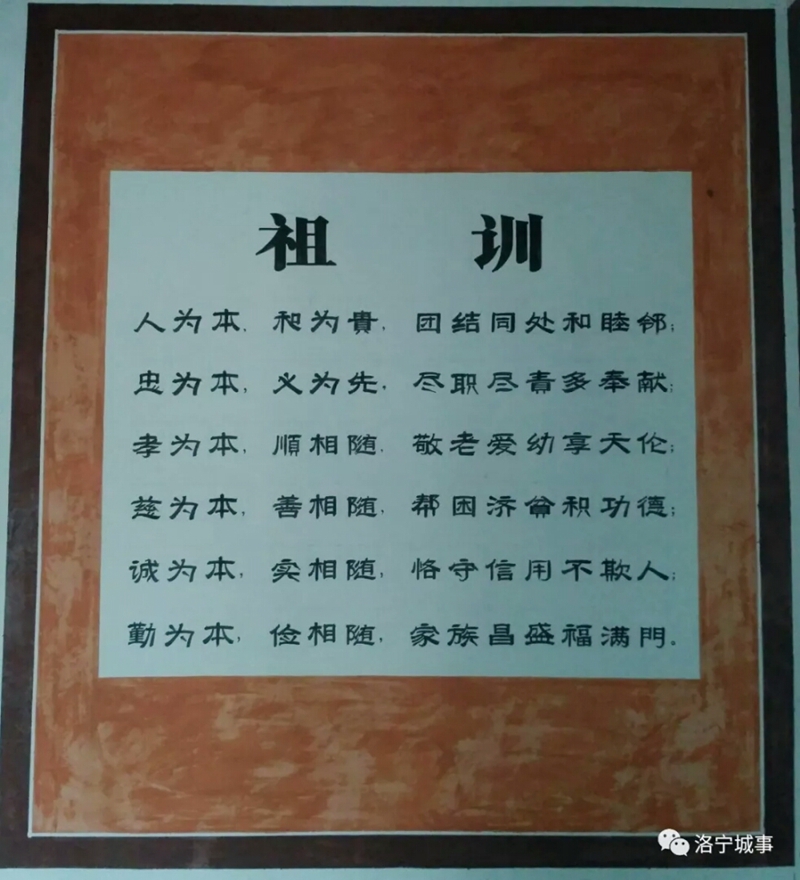 祖 训
人为本，和为貴，团结同处和睦邻；
忠为本，义为先，尽职尽责多奉献；
孝为本，順相随，敬老爱幼享天伦；
慈为本，善相随，帮困济貧积功德；
诚为本，实相随，恪守信用不欺人；
勤为本，俭相随，家族昌盛福满門。
洛宁城事